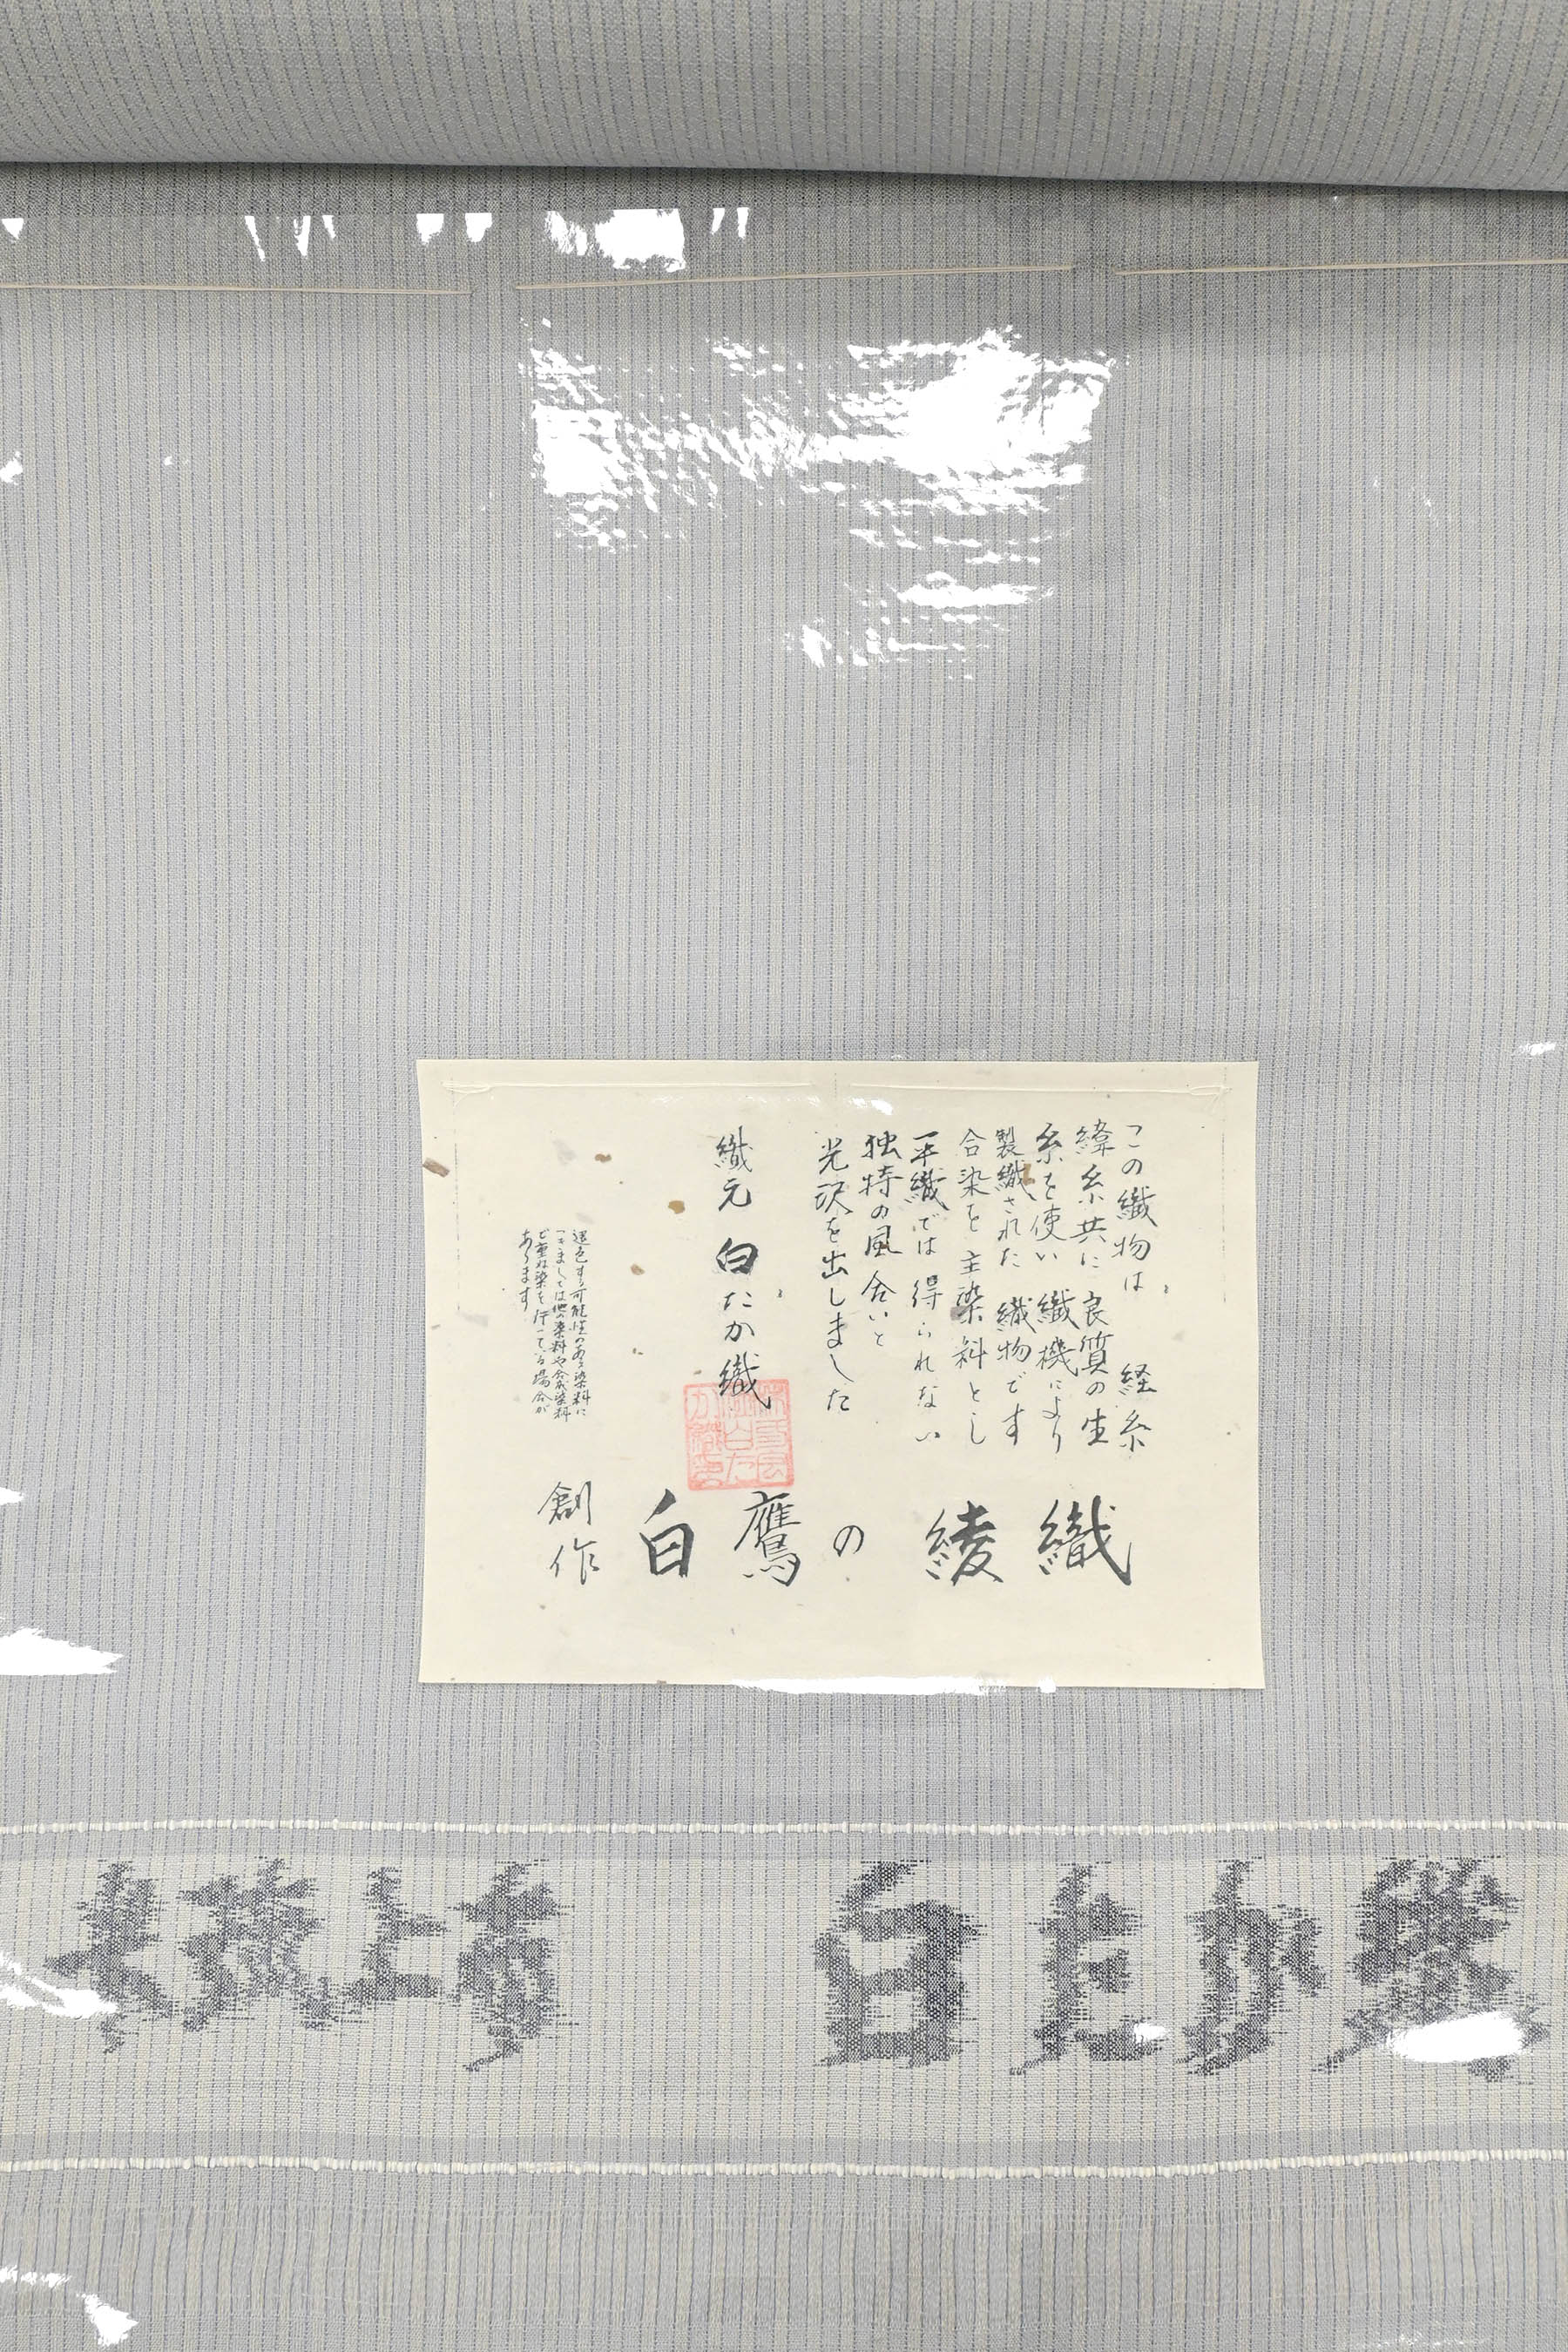 この織物は 経糸
緯糸共に 良質の生
糸を使い 織機により
製織された 織物です
合染を 主染料とし
平織では 得られない
独特の風合いと
光沢を出しました
織元 白たか織
退色する可能性のある染料に
つきましては他の染料や合成染料
で重ね染を行っている場合が
あります
創作 白鷹の綾織
白たか